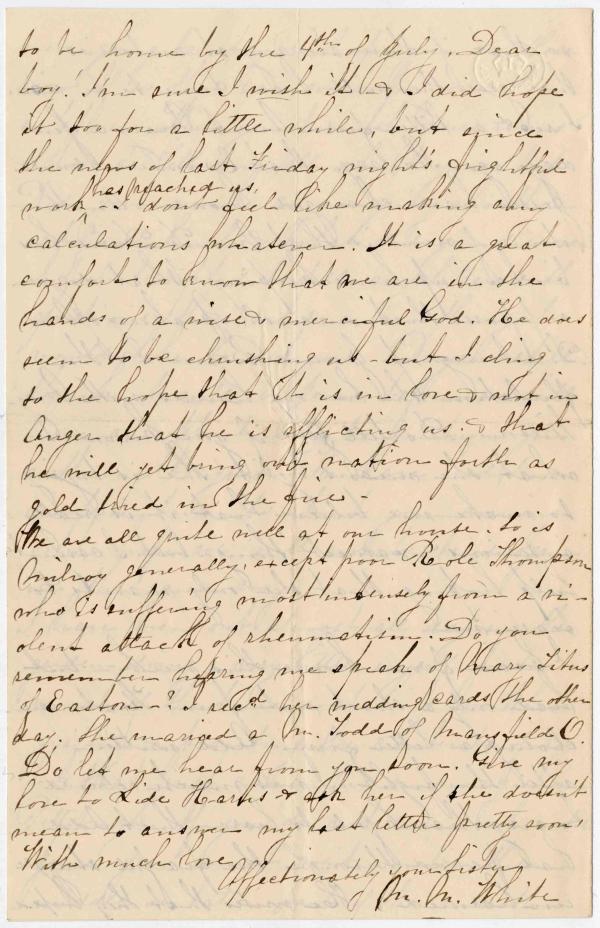 to be home by the 4th of July. Dear
boy! I'm sure I wish it - & I did hope
it too for a little while, but since
the news of last Friday night's frightful
work - has reached us, I don't feel like making any
calculations whatever. It is a great
comfort to know that we are in the
hands of a wise & merciful God. He does
seem to be chastising us - but I cling
to the hope that it is in love & not in
Anger that he is afflicting us. & that
he will yet bring our nation forth as
gold tried in the fire -
We are all quite well at our house. So is
Milroy generally, except poor Robe Thompson
who is suffering most intensely from a vi-
olent attack of rheumatism. Do you
remember hearing me speak of Mary Titus
of Easton -? I recd her wedding cards the other
day. She married a M. Todd of Mansfield O.
Do let me hear from you soon. Give my
love to Lide Harris & ask her if she doesn't
mean to answer my last letter pretty soon!
With much love
Affectionately your sister
M. M. White